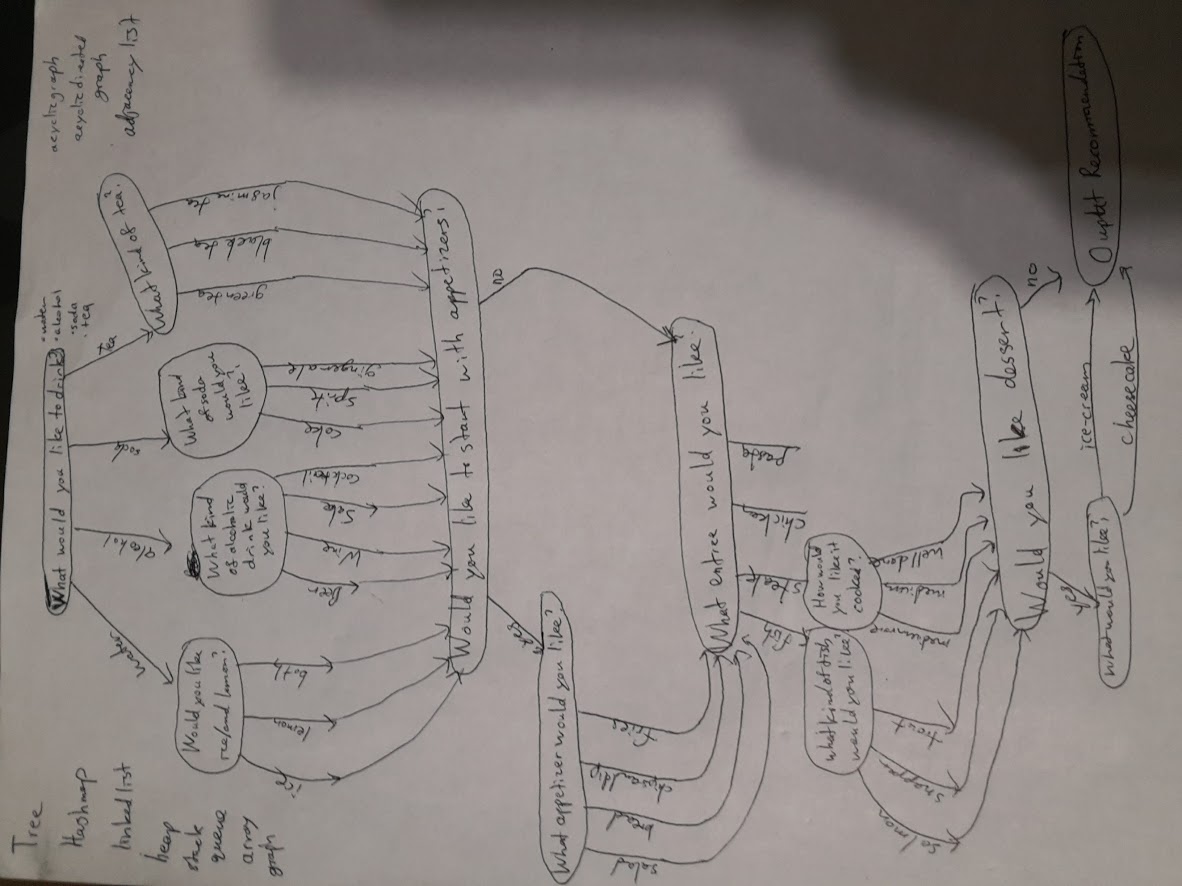 Tree
Hashmap
linked list
heap
stack
queue
array
graph
What would you like to drink?
• water
• alcohol
• soda
• tea
acyclic graph
acyclic directed
graph
adjacency list
water
alcohol
soda
tea
What kind of tea?
Would you like
ice/and lemon?
What kind
of alcoholic
drink would
you like?
What kind
of soda
would you
like?
ice
lemon
both
Beer
Wine
Sake
cocktail
coke
sprite
gingerale
green tea
black tea
jasmine tea
Would you like to start with appetizers?
yes
no
What appetizer would you like?
salad
bread
chips and dip
fries
What entree would you like?
fish
steak
chicken
pasta
what kind of fish
would you like?
How would
you like it
cooked?
Salmon
snapper
trout
medium rare
medium
well done
Would you like dessert?
yes
no
What would you like?
ice-cream
cheesecake
Ouptut Recommendation